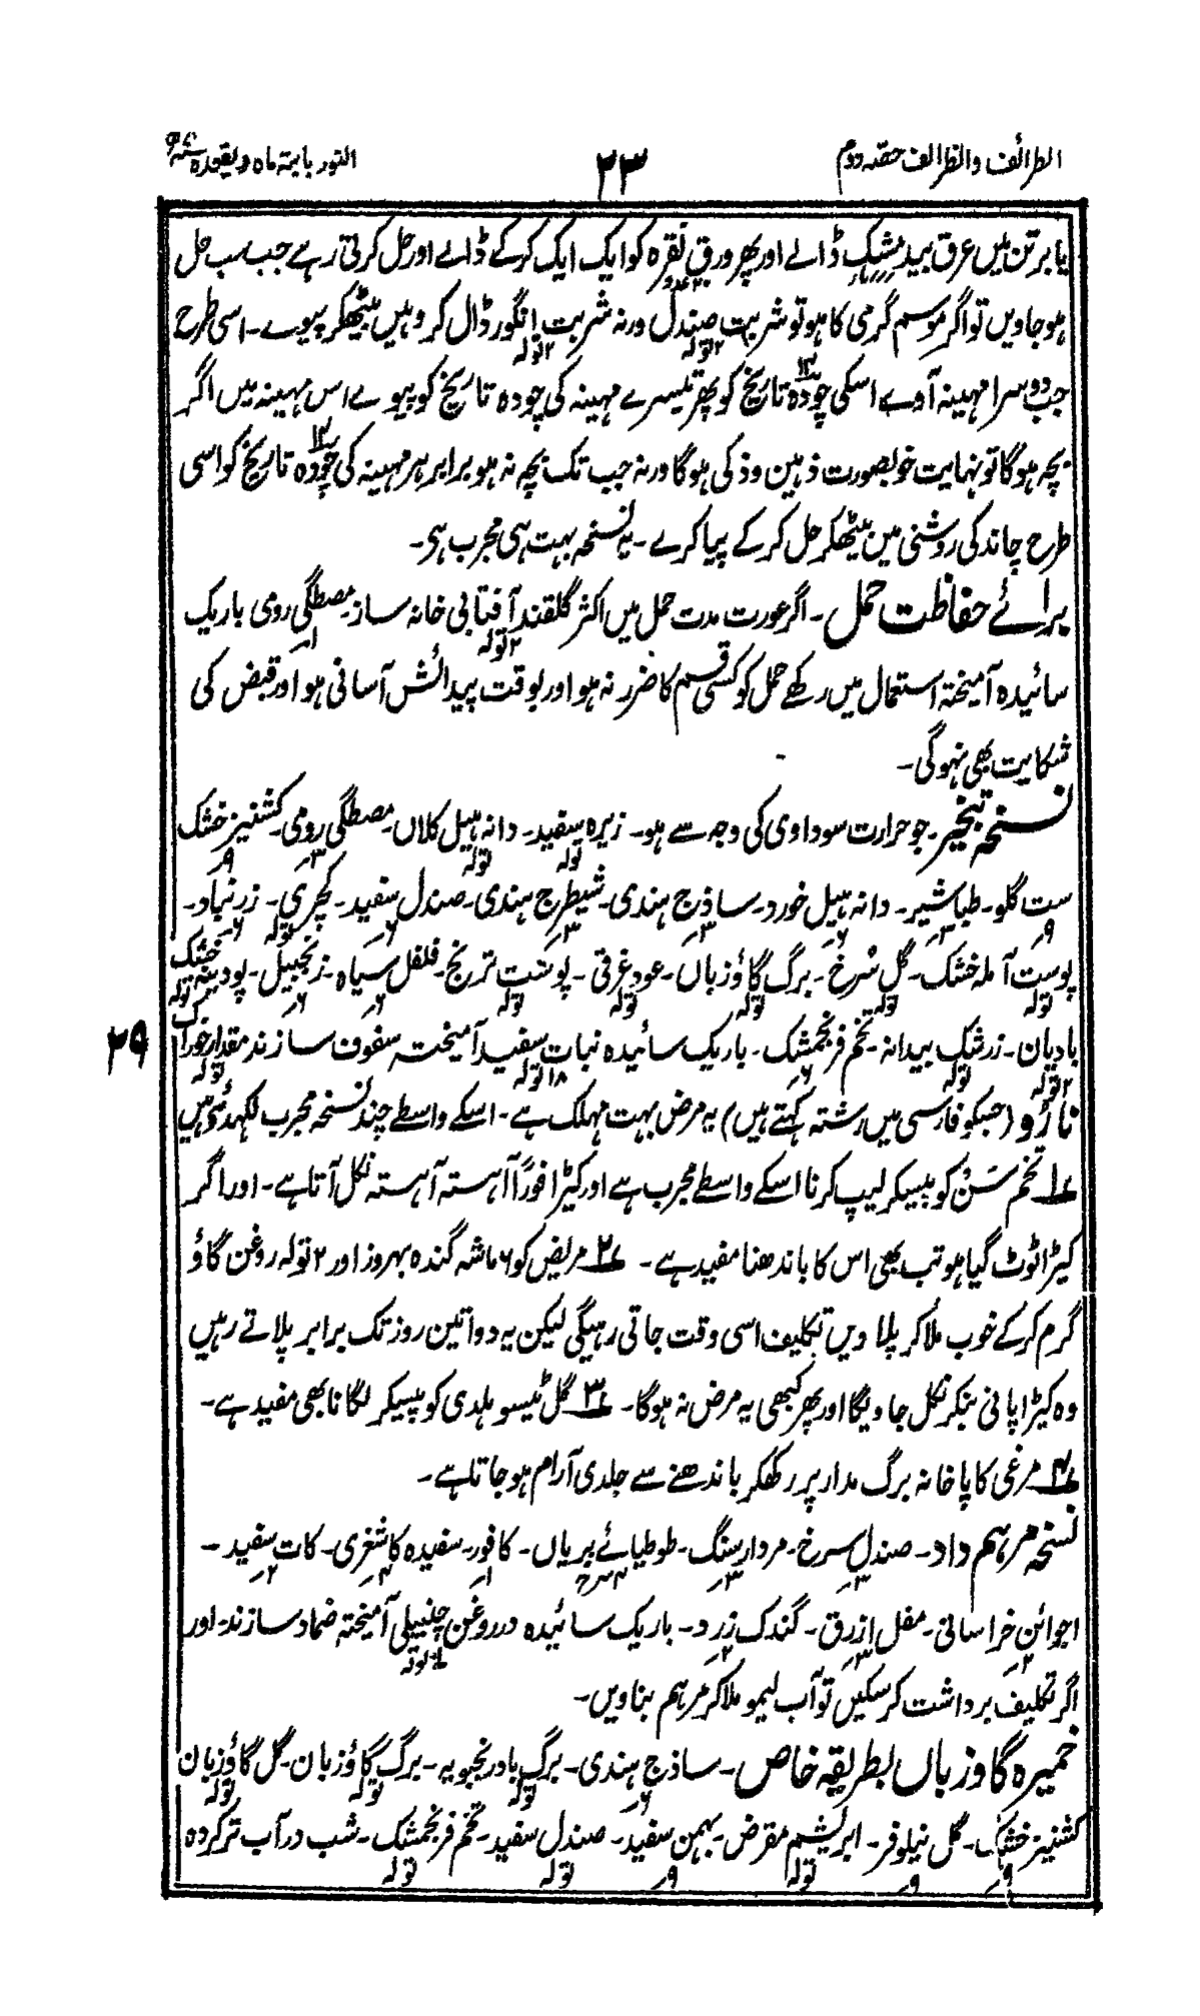 الطرائف والظرائف حصہ دوم
۲۳
النور بابتہ ماہ ذیقعدہ
یا برتن میں عرق بید مشک ڈالے اور پھر ورق نقرہ کو ایک ایک کرکے ڈالے اور حل کرتی رہے جب سب حل
ہو جاویں تو اگر موسم گرمی کا ہو تو شربت صندل ورنہ شربت انگور ڈال کر وہیں بیٹھکر پیوے۔ اسی طرح
۲ تولہ ۲ تولہ
جب دوسرا مہینہ آوے اسکی چودہ تاریخ کو پھر تیسرے مہینہ کی چودہ تاریخ کو پیوے اس مہینہ میں اگر
بچہ ہوگا تو نہایت خوبصورت ذہین و ذکی ہوگا ورنہ جب تک بچہ نہ ہو برابر ہر مہینہ کی چودہ تاریخ کو اسی
طرح چاند کی روشنی میں بیٹھکر حل کرکے پیا کرے۔ یہ نسخہ بہت ہی مجرب ہی۔
برائے حفاظت حمل۔ اگر عورت مدت حمل میں اکثر گلقند آفتابی خانہ ساز۔ مصطگی رومی باریک
۲ تولہ ۱؍
سائیدہ آمیختہ استعمال میں رکھے حمل کو کسی قسم کا ضرر نہ ہو اور بوقت پیدائش آسانی ہو اور قبض کی
شکایت بھی نہوگی۔
نسخہ تبخیر۔ جو حرارت سوداوی کی وجہ سے ہو۔ زیرہ سفید۔ دانہ ہیل کلاں۔ مصطگی رومی۔ کشنیز خشک
تولہ تولہ ۳؍ ۹؍
ست گلو۔ طباشیر۔ دانہ ہیل خورد۔ ساذج ہندی۔ شیطرج ہندی۔ صندل سفید۔ کچری۔ زرنباد۔
۹؍ ۳؍ ۶؍ ۳؍ ۳؍ ۶؍ تولہ ۶؍
پوست آملہ خشک۔ گل سُرخ۔ برگ گاؤزباں۔ عود غرقی۔ پوست ترنج۔ فلفل سیاہ۔ زنجبیل۔ پودینہ خشک
تولہ تولہ تولہ تولہ تولہ ۶؍ ۶؍ تولہ
بادیان۔ زرشک بیدانہ۔ تخم فرنجمشک۔ باریک سائیدہ نبات سفید آمیختہ سفوف سازند مقدار خوراک
۲ تولہ تولہ ۶؍ ۱۸ تولہ تولہ
۲۹
نارُو (جسکو فارسی میں رشتہ کہتے ہیں) یہ مرض بہت مہلک ہے۔ اسکے واسطے چند نسخہ مجرب لکھدئے ہیں
۱؎ تخم سَنْ کو پیسکر لیپ کرنا اسکے واسطے مجرب ہے اور کیڑا فوراً آہستہ آہستہ نکل آتا ہے۔ اور اگر
کیڑا ٹوٹ گیا ہو تب بھی اس کا باندھنا مفید ہے۔ ۲؎ مریض کو ۶ ماشہ گندہ بہروزا اور ۲ تولہ روغن گاؤ
گرم کرکے خوب ملا کر پلا ویں تکلیف اسی وقت جاتی رہیگی لیکن یہ دوا تین روز تک برابر پلاتے رہیں
وہ کیڑا پانی بنکر نکل جاویگا اور پھر کبھی یہ مرض نہ ہوگا۔ ۳؎ گل ٹیسو ہلدی کو پیسکر لگانا بھی مفید ہے۔
۴؎ مرغی کا پاخانہ برگ مدار پر رکھکر باندھنے سے جلدی آرام ہو جاتا ہے۔
نسخہ مرہم داد۔ صندل سرخ۔ مردار سنگ۔ طوطیائے بریاں۔ کافور۔ سفیدہ کاشغری۔ کات سفید۔
۳؍ ۳؍ ۱؍ ۲؍
اجوائن خراسانی۔ مقل ازرق۔ گندک زرد۔ باریک سائیدہ در روغن چنبیلی آمیختہ ضماد سازند۔ اور
۲؍ ۳؍ ۲؍ تولہ
اگر تکلیف برداشت کرسکیں تو آب لیمو ملا کر مرہم بناویں۔
خمیرہ گاوزباں بطریقہ خاص۔ ساذج ہندی۔ برگ بادرنجبویہ۔ برگ گاؤزبان۔ گل گاؤزبان
۶؍ تولہ تولہ تولہ
کشنیز خشک۔ گل نیلوفر۔ ابریشم مقرض۔ بہمن سفید۔ صندل سفید۔ تخم فرنجمشک۔ شب در آب تر کردہ
۹؍ ۹؍ تولہ ۹؍ تولہ تولہ